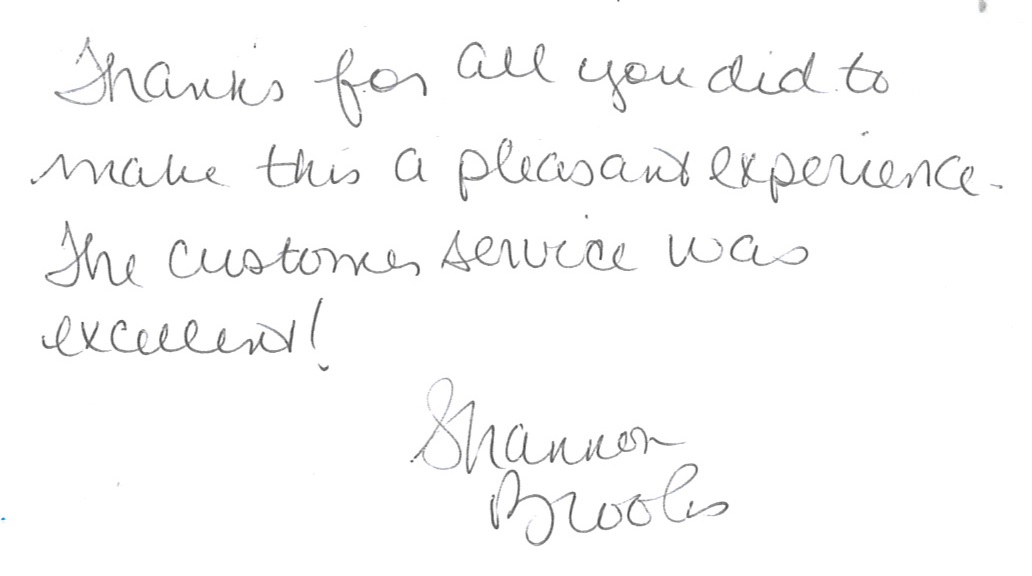 Thanks for all you did to
make this a pleasant experience.
The customer service was
excellent!
Shannon
Brooks